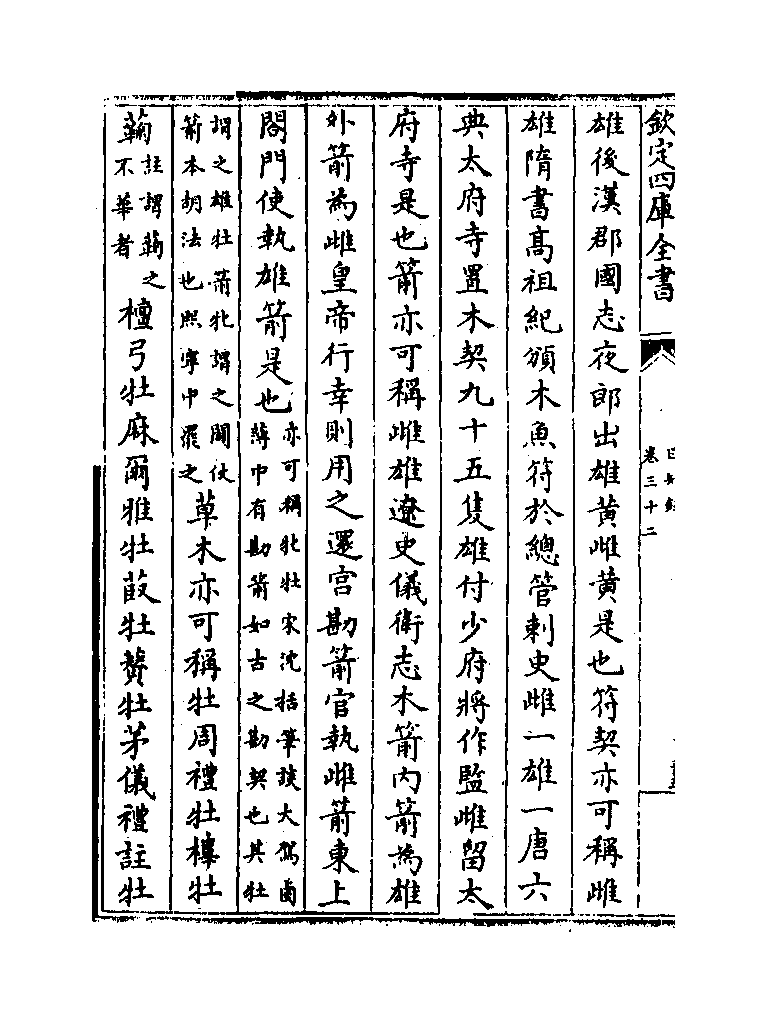 欽定四庫全書
卷三十二
雄後漢郡國志夜郎出雄黃雌黃是也符契亦可稱雌
雄隋書高祖紀頒木魚符於總管刺史雌一雄一唐六
典太府寺置木契九十五隻雄付少府將作監雌留太
府寺是也箭亦可稱雌雄遼史儀衛志木箭内箭為雄
外箭為雌皇帝行幸則用之還宮勘箭官執雌箭東上
閤門使執雄箭是也亦可稱牝牡宋沈括筆談大駕鹵簿中有勘箭如古之勘契也其牡
謂之雄牡箭牝謂之闢仗箭本胡法也熙寧中罷之草木亦可稱牡周禮牡橭牡
蘜註謂蘜之不華者檀弓牡麻爾雅牡菣牡䕅牡茅儀禮註牡